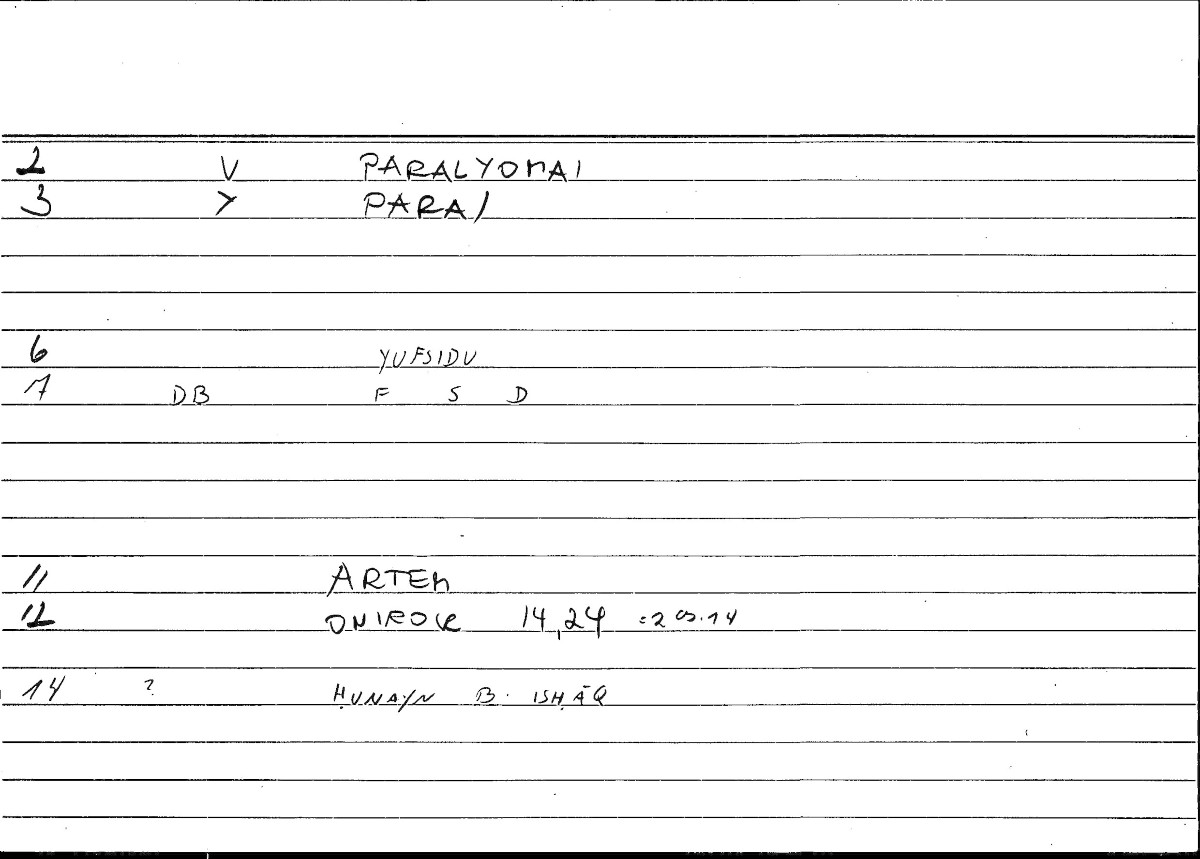 2 V PARALYOMAI
3 > PARA/
6 YUFSIDU
7 DB F S D
11 ARTEM
12 ONIROCR 14,24 =203.14
14 ? ḤUNAYN B. ISḤĀQ